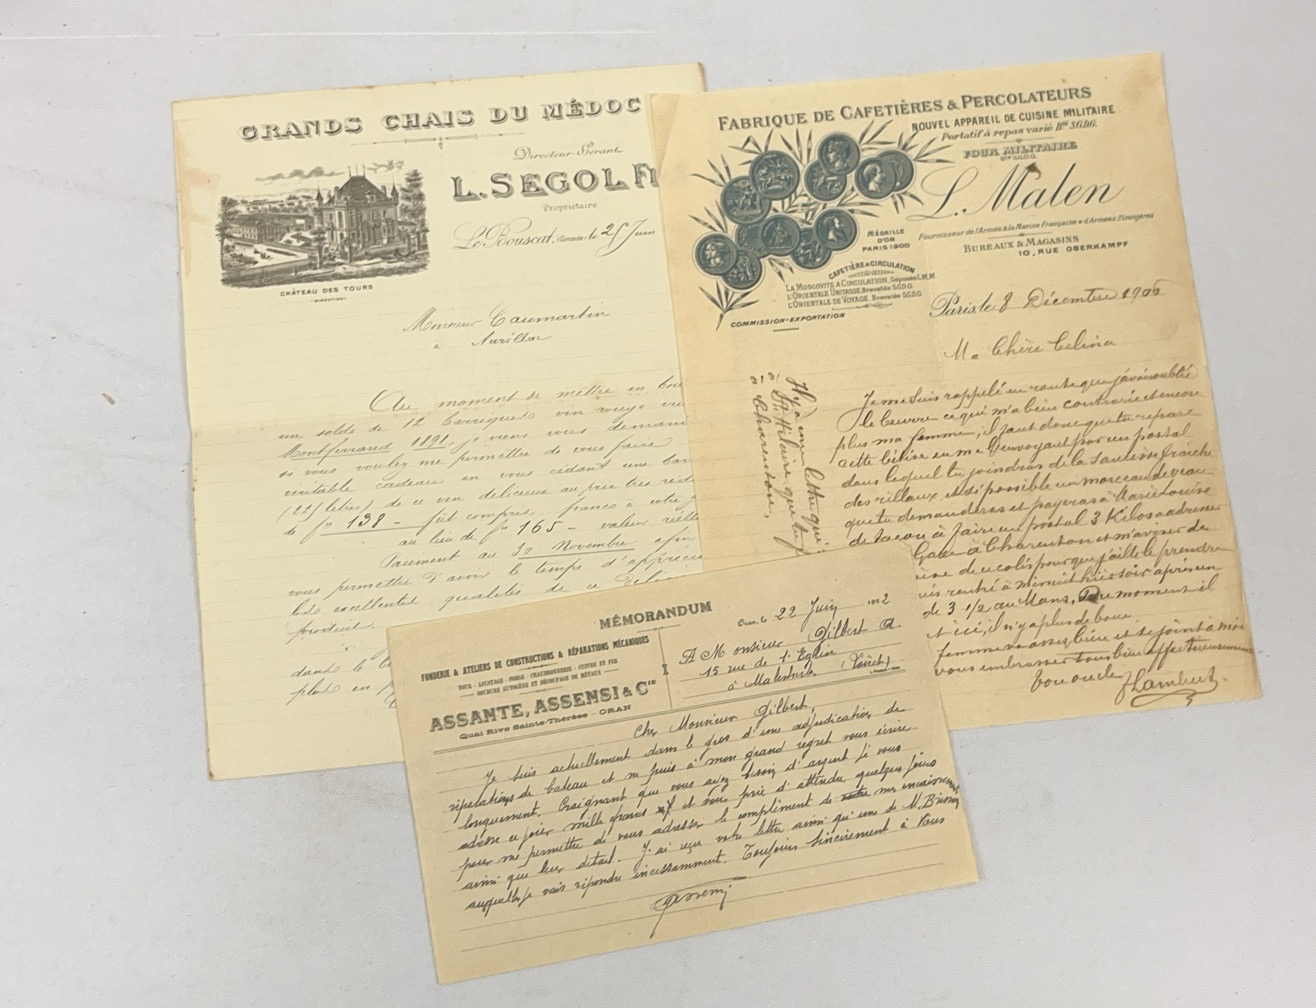 GRANDS CHAIS DU MÉDOC
Directeur-Gérant
L. SEGOL
Propriétaire
Le Bouscat, (Gironde) le 25 Juin
CHÂTEAU DES TOURS
(DIRECTION)
Monsieur Caumartin
à Aurillac
Au moment de mettre en
un solde de 12 barriques vin rouge
Montferrand 1891, je viens vous
si vous voulez me permettre de vous faire
véritable cadeau en vous cédant une
litres) de ce vin délicieux au prix très
de f. 138 - fût compris, franco à votre
au lieu de f. 165 - valeur
Paiement au 30 Novembre afin
vous permettre d'avoir le temps
les excellentes qualités de ce
produit.
dans le
FABRIQUE DE CAFETIÈRES & PERCOLATEURS
NOUVEL APPAREIL DE CUISINE MILITAIRE
Portatif à repas varié Bté S.G.D.G.
FOUR MILITAIRE
Bté S.G.D.G.
L. Malen
Fournisseur de l'Armée à la Marine Française & d'Armées Etrangères
BUREAUX & MAGASINS
10, RUE OBERKAMPF
MÉDAILLE
D'OR
PARIS 1900
CAFETIÈRE A CIRCULATION
LA MOSCOVITE A CIRCULATION, Déposée L.M.M.
L'ORIENTALE UNITASSE, Brevetée S.G.D.G.
L'ORIENTALE DE VOYAGE, Brevetée S.G.D.G.
COMMISSION-EXPORTATION
Paris, le 8 Décembre 1906
Ma Chère Celina
Je me suis rappelé en route que j'avais oublié
le beurre ce qui m'a bien contrarié et encore
plus ma femme, il faut donc que tu repare
cette bêtise en me l'envoyant par un postal
dans lequel tu joindras de la saucisse fraîche
des rillaux, et si possible un morceau de veau
que tu demanderas et payeras à Marie Louise
à faire un postal 3 Kilos à adresser
Gare à Charenton et m'aviser de
du colis pour que j'aille le prendre
rentré à minuit hier soir après un
de 3 1/2 au Mans, Du moment il
ici, il n'y a plus de boue
femme va assez bien et se joint à moi
vous embrasser tous bien affectueusement
J Lambert
Il y a une lettre qui
à St Hilaire que tu
à Charenton,
MÉMORANDUM
FONDERIE & ATELIERS DE CONSTRUCTIONS & RÉPARATIONS MÉCANIQUES
TOUR - AJUSTAGE - FORGE - CHAUDRONNERIE - CUIVRE ET FER
SOUDURE AUTOGÈNE ET DÉCOUPAGE DE MÉTAUX
ASSANTE, ASSENSI & Cie
Quai Rive Sainte-Thérèse - ORAN
Oran, le 22 Juin
A Monsieur Gilbert A.
15 rue de l'Eglise
à
Cher Monsieur Gilbert,
Je suis actuellement dans le gros d'une adjudication de
réparations de bateau et ne puis à mon grand regret vous écrire
longuement. Craignant que vous ayez besoin d'argent je vous
adresse ce jour mille francs et vous prie d'attendre quelques jours
pour me permettre de vous adresser le complément de mes encaissements
ainsi que leur détail. J'ai reçu votre lettre ainsi qu'une de M.
auxquelles je vais répondre incessamment. Toujours sincèrement à Vous